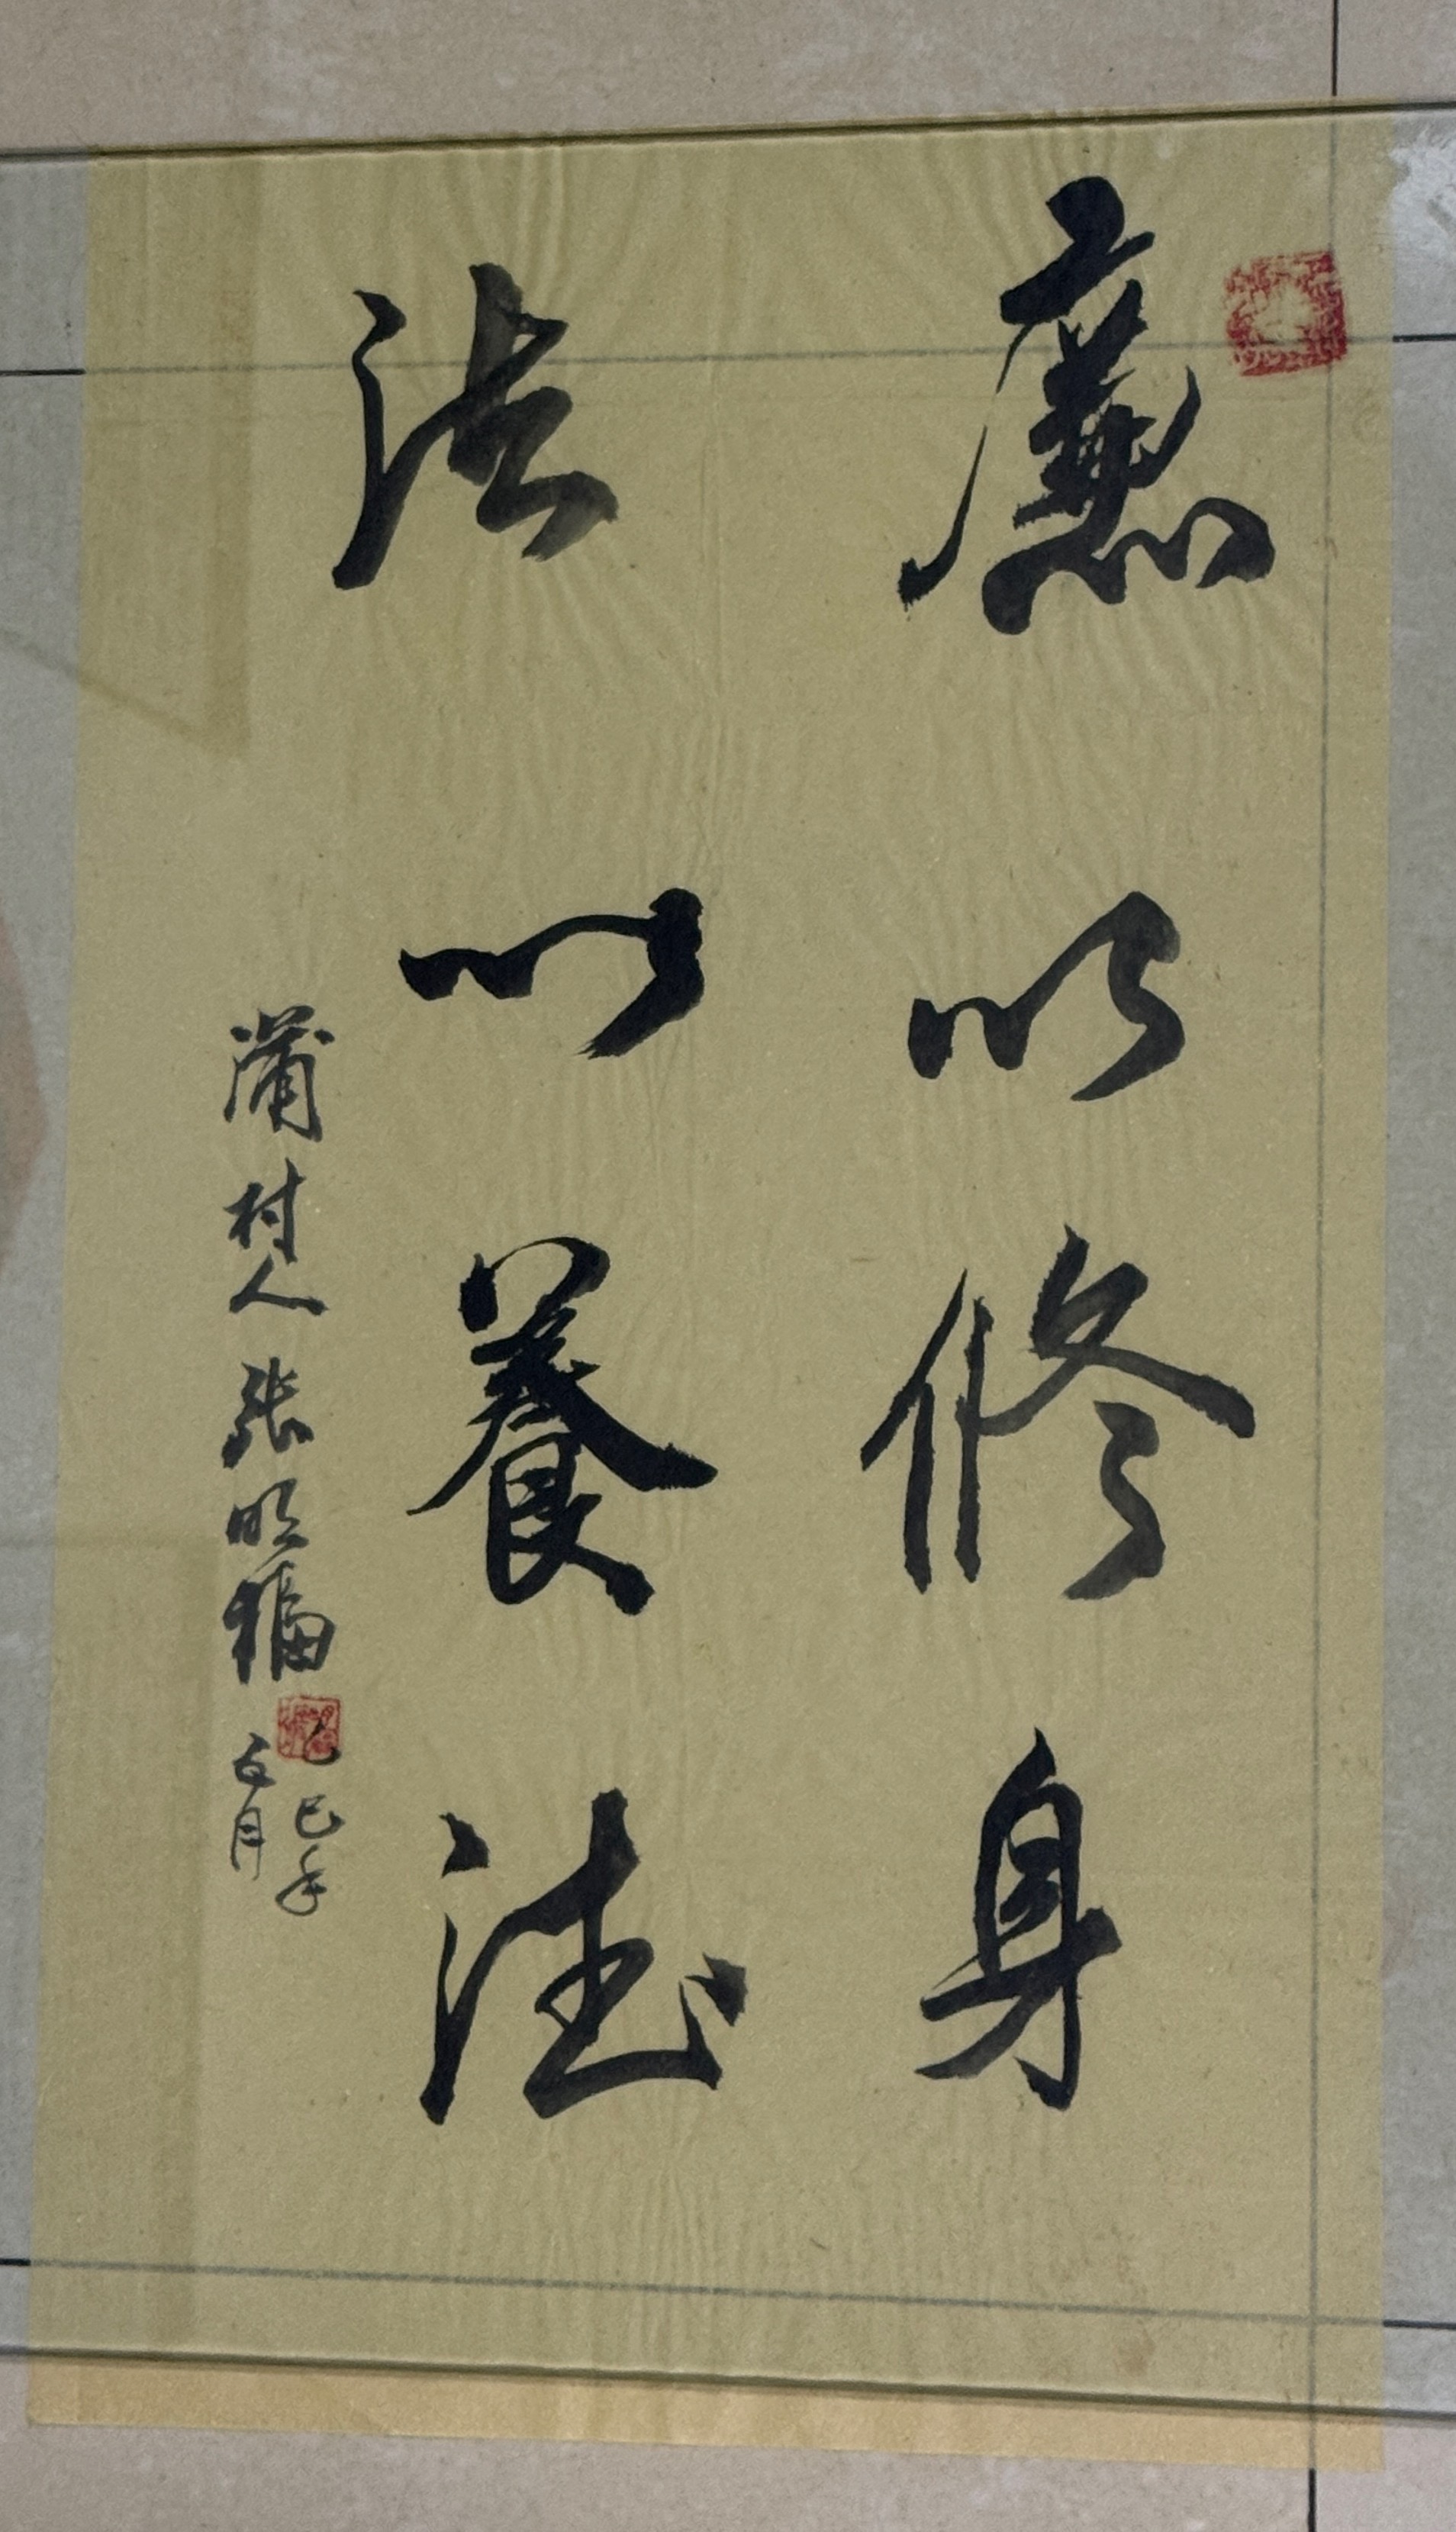 廉以修身
法以養德
蒲村人張明福
乙巳年
五月